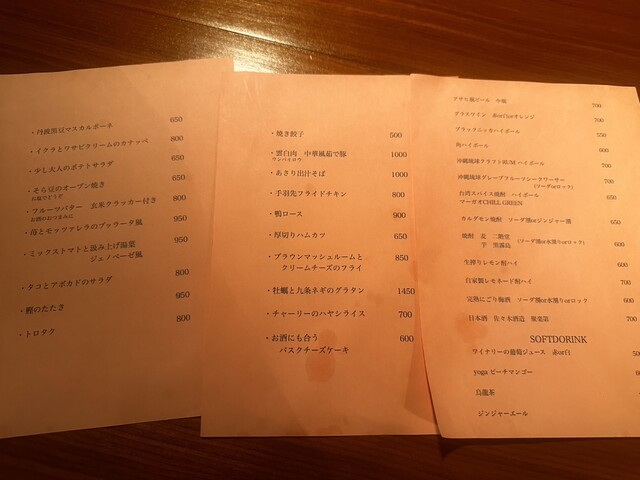 ・丹波黒豆マスカルポーネ 650
・イクラとワサビクリームのカナッペ 800
・少し大人のポテトサラダ 650
・そら豆のオーブン焼き 650
お塩でどうぞ
・フルーツバター 玄米クラッカー付き 800
お酒のおつまみに
・苺とモッツァレラのブッラータ風 950
・ミックストマトと汲み上げ湯葉 950
ジェノベーゼ風
・タコとアボカドのサラダ 800
・鰹のたたき 950
・トロタク 800
・焼き餃子 500
・雲白肉 中華風茹で豚 1000
ウンパイロウ
・あさり出汁そば 1000
・手羽先フライドチキン 800
・鴨ロース 900
・厚切りハムカツ 650
・ブラウンマッシュルームと 850
クリームチーズのフライ
・牡蠣と九条ネギのグラタン 1450
・チャーリーのハヤシライス 700
・お酒にも合う 600
バスクチーズケーキ
アサヒ瓶ビール 中瓶 700
グラスワイン 赤or白orオレンジ 700
ブラックニッカハイボール 550
角ハイボール 600
沖縄琉球クラフトRUM ハイボール 700
沖縄琉球グレープフルーツシークワーサー 700
(ソーダorロック)
台湾スパイス焼酎 ハイボール 650
マーガオCHILL GREEN
カルダモン焼酎 ソーダ割orジンジャー割 650
焼酎 麦 二階堂 (ソーダ割or水割りorロック) 600
芋 黒霧島
生搾りレモン酎ハイ 600
自家製レモネード酎ハイ 700
完熟にごり梅酒 ソーダ割or水割りorロック 600
日本酒 佐々木酒造 聚楽第 700
SOFTDORINK
ワイナリーの葡萄ジュース 赤or白
yoga ピーチマンゴー
烏龍茶
ジンジャーエール